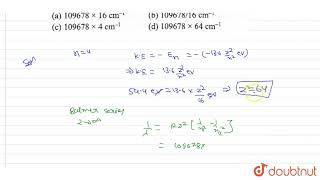 (a) 109678 × 16 cm⁻¹ (b) 109678/16 cm⁻¹
(c) 109678 × 4 cm⁻¹ (d) 109678 × 64 cm⁻¹
Solⁿ n=4 KE = - Eₙ = - (-13.6 z²/n² ev
⇒ KE = 13.6 z²/n² ev
54.4 ev = 13.6 × z²/16 ev ⇒ z²=64
Balmer series
2→∞
1/λ = Rz² [1/n₁² - 1/n₂²]
= 109678×
doubtnut